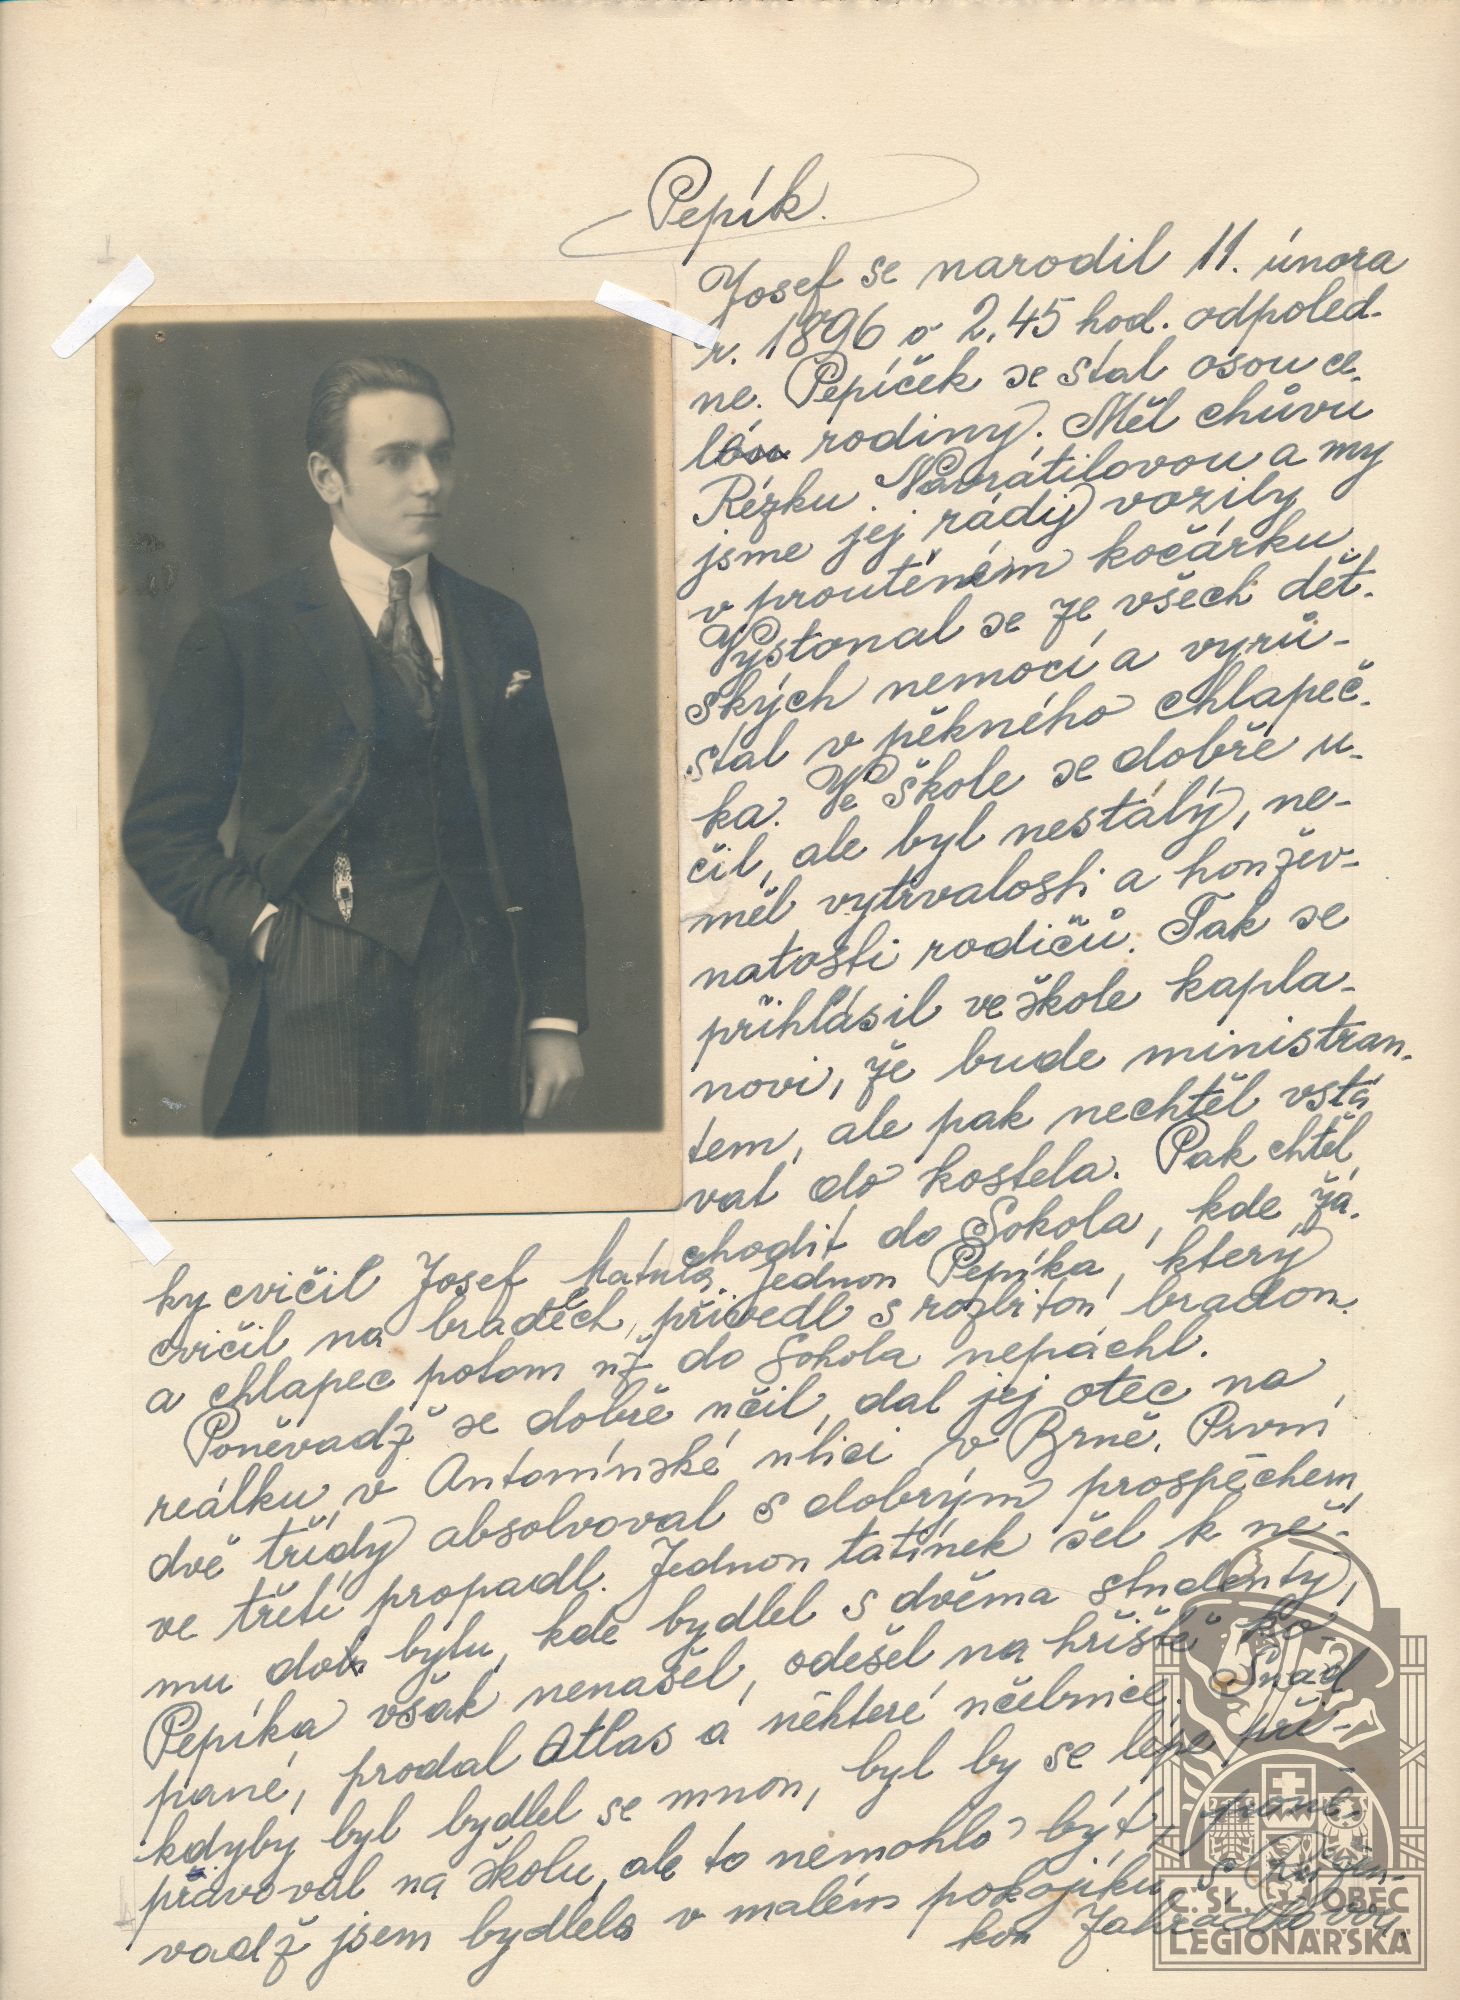 Pepík.
Josef se narodil 11. února
r. 1896 o 2.45 hod. odpoled-
ne. Pepíček se stal osou ce-
lé rodiny. Měl chůvu
Rézku Navrátilovou a my
jsme jej rády vozily
v proutěném kočárku.
Vystonal se ze všech dět-
ských nemocí a vyrů-
stal v pěkného chlapeč-
ka. Ve škole se dobře u-
čil, ale byl nestálý, ne-
měl vytrvalosti a honžev-
natosti rodičů. Tak se
přihlásil ve škole kapla-
novi, že bude ministran-
tem, ale pak nechtěl vstá
vat do kostela. Pak chtěl
chodit do Sokola, kde žá-
ky cvičil Josef Matula. Jednou Pepíka, který
cvičil na bradlech, přivedl s rozbitou bradou
a chlapec potom už do Sokola nepáchl.
Poněvadž se dobře učil, dal jej otec na
reálku v Antonínské ulici v Brně. První
dvě třídy absolvoval s dobrým prospěchem,
ve třetí propadl. Jednou tatínek šel k ně-
mu do bytu, kde bydlel s dvěma studenty,
Pepíka však nenašel, odešel na hřiště ko-
pané, prodal atlas a některé učebnice. Snad
kdyby byl bydlel se mnou, byl by se lépe při-
pravoval na školu, ale to nemohlo být, poně-
vadž jsem bydlela v malém pokojíku s
kou Zahrádkovou.
Č.SL. OBEC
LEGIONÁŘSKÁ